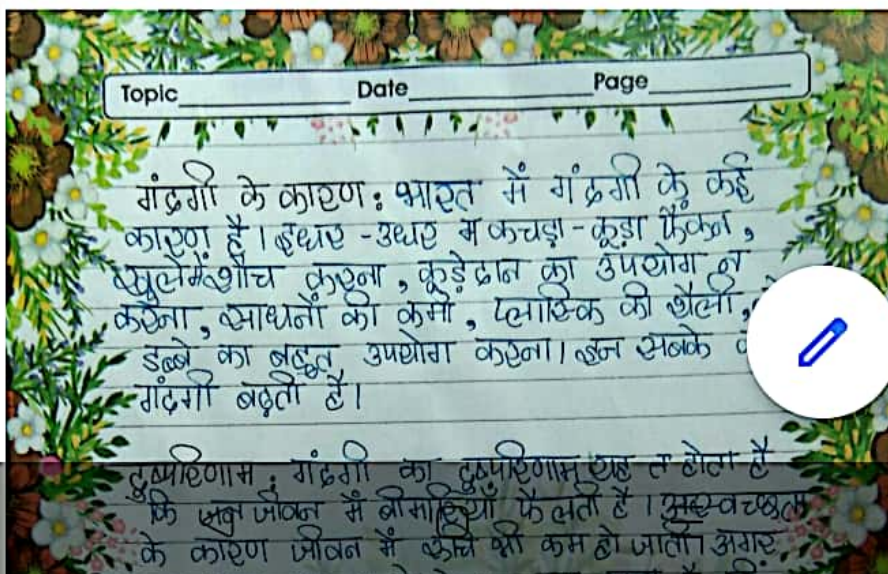 Topic Date Page
गंदगी के कारण : भारत में गंदगी के कई
कारण है । इधर - उधर म कचड़ा - कूड़ा फैकन ,
खुलेमें शौच करना , कूड़ेदान का उपयोग न
करना , साधनों की कमी , प्लास्कि की थैली ,
डब्बे का बहुत उपयोग करना । इन सबके
गंदगी बढ़ती है ।
दुष्परिणाम : गंदगी का दुष्परिणाम यह त होता है
कि जन जीवन में बीमारियाँ फैलती है । अस्वच्छता
के कारण जीवन में रूचि भी कम हो जाती । अगर